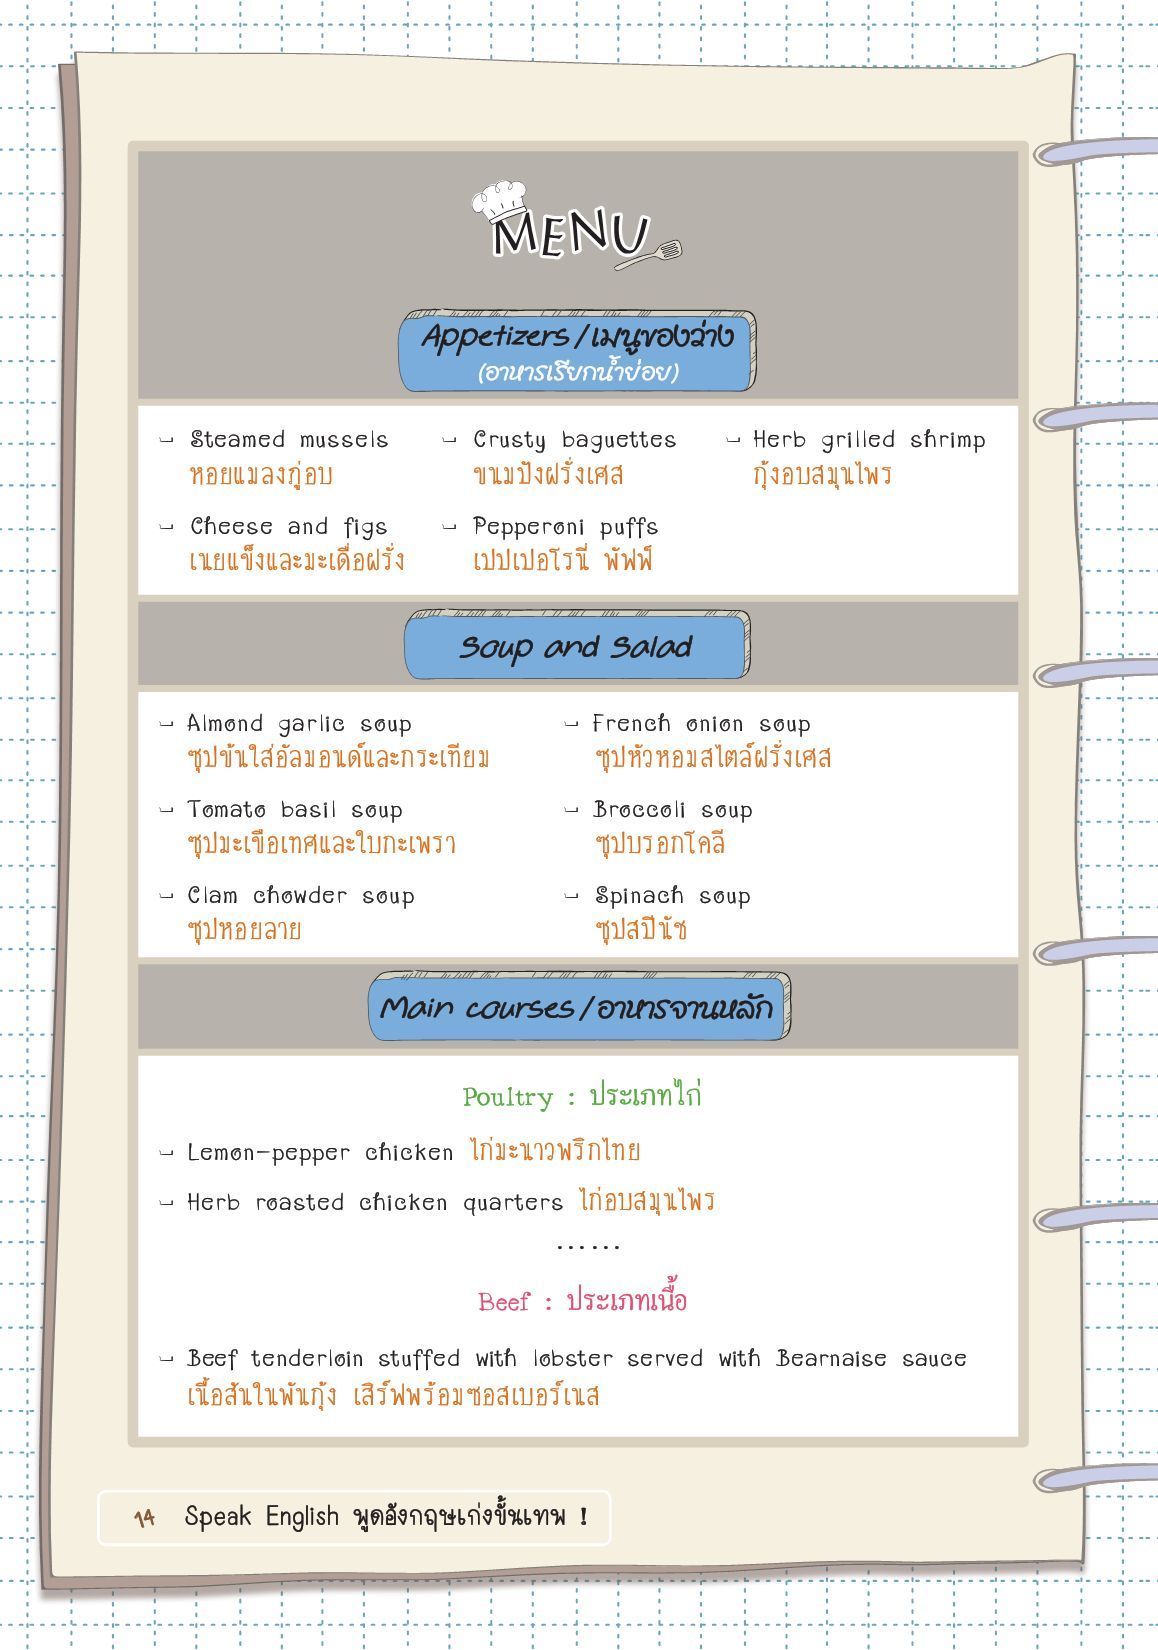 MENU
Appetizers/เมนูของว่าง
(อาหารเรียกน้ำย่อย)
Steamed mussels
หอยแมลงภู่อบ
Crusty baguettes
ขนมปังฝรั่งเศส
Herb grilled shrimp
กุ้งอบสมุนไพร
Cheese and figs
เนยแข็งและมะเดื่อฝรั่ง
Pepperoni puffs
เปปเปอโรนี่ พัฟฟ์
Soup and Salad
Almond garlic soup
ซุปข้นใส่อัลมอนด์และกระเทียม
French onion soup
ซุปหัวหอมสไตล์ฝรั่งเศส
Tomato basil soup
ซุปมะเขือเทศและใบกะเพรา
Broccoli soup
ซุปบรอกโคลี
Clam chowder soup
ซุปหอยลาย
Spinach soup
ซุปสปีนัช
Main courses/อาหารจานหลัก
Poultry : ประเภทไก่
Lemon-pepper chicken ไก่มะนาวพริกไทย
Herb roasted chicken quarters ไก่อบสมุนไพร
......
Beef : ประเภทเนื้อ
Beef tenderloin stuffed with lobster served with Bearnaise sauce
เนื้อสันในพันกุ้ง เสิร์ฟพร้อมซอสเบอร์เนส
14 Speak English พูดอังกฤษเก่งขั้นเทพ !